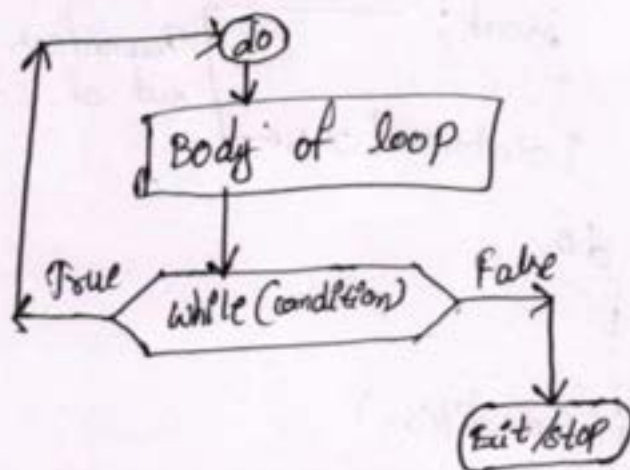 do
Body of loop
True
while (condition)
False
Exit/stop